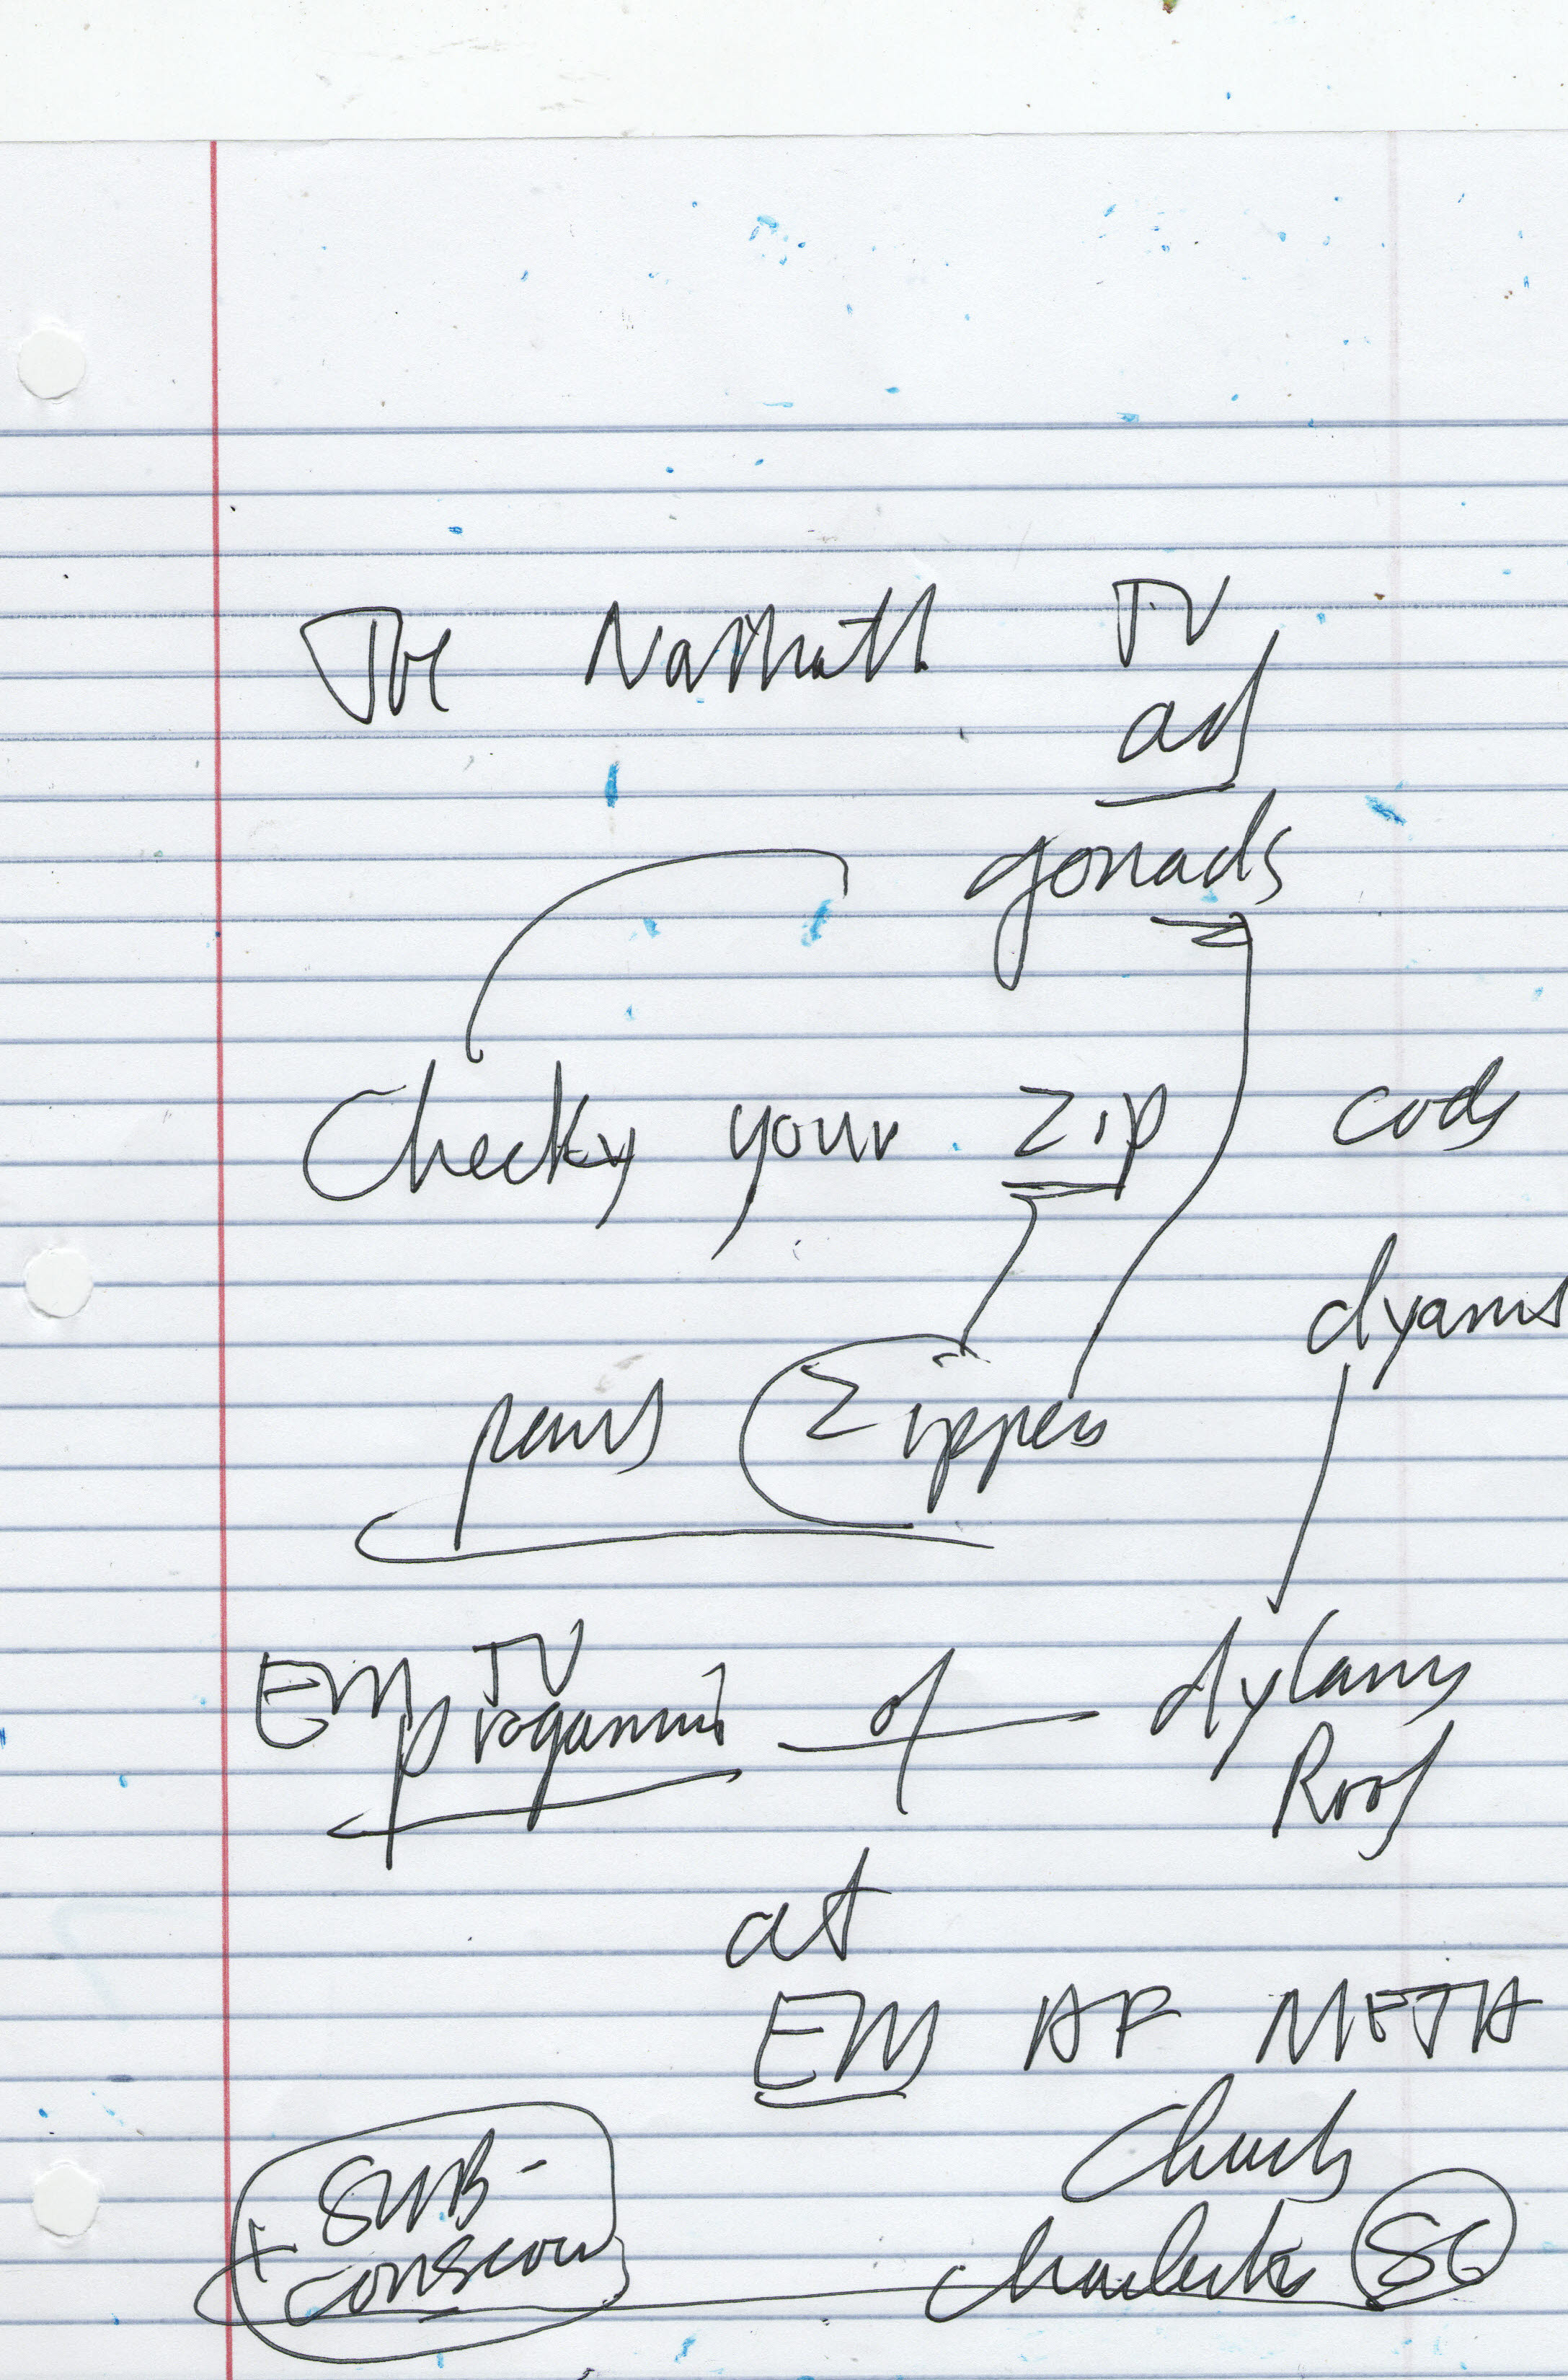 Joe Namath TV
ad
gonads
Checky your Zip code
dyanis
penis Zippers
EM TV
programing of dylans
Roof
at
EM AF METH
Church
Charleston SC
SUB-
conscious